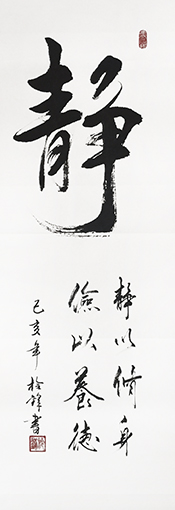 靜
靜以修身
儉以養德
己亥年 栓鎖書